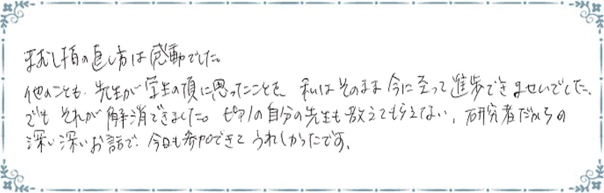 まむし指の直し方は感動でした。
他のことも、先生が学生の頃に思ったことを 私はそのまま今に至って進歩できませんでした、
でも それが解消できました。ピアノの自分の先生も教えてもらえない、研究者だからの
深い深いお話で、今日も参加できて うれしかったです。